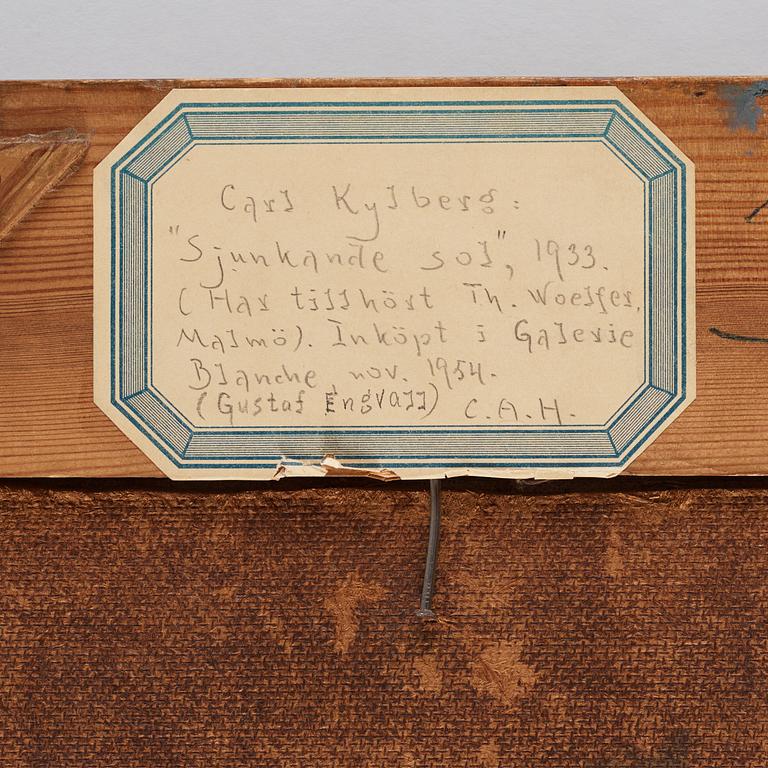 Carl Kylberg:
"Sjunkande sol", 1933.
(Har tillhört Th. Woelfer,
Malmö). Inköpt i Galerie
Blanche, nov. 1954.
(Gustaf Engvall) C.A.H.